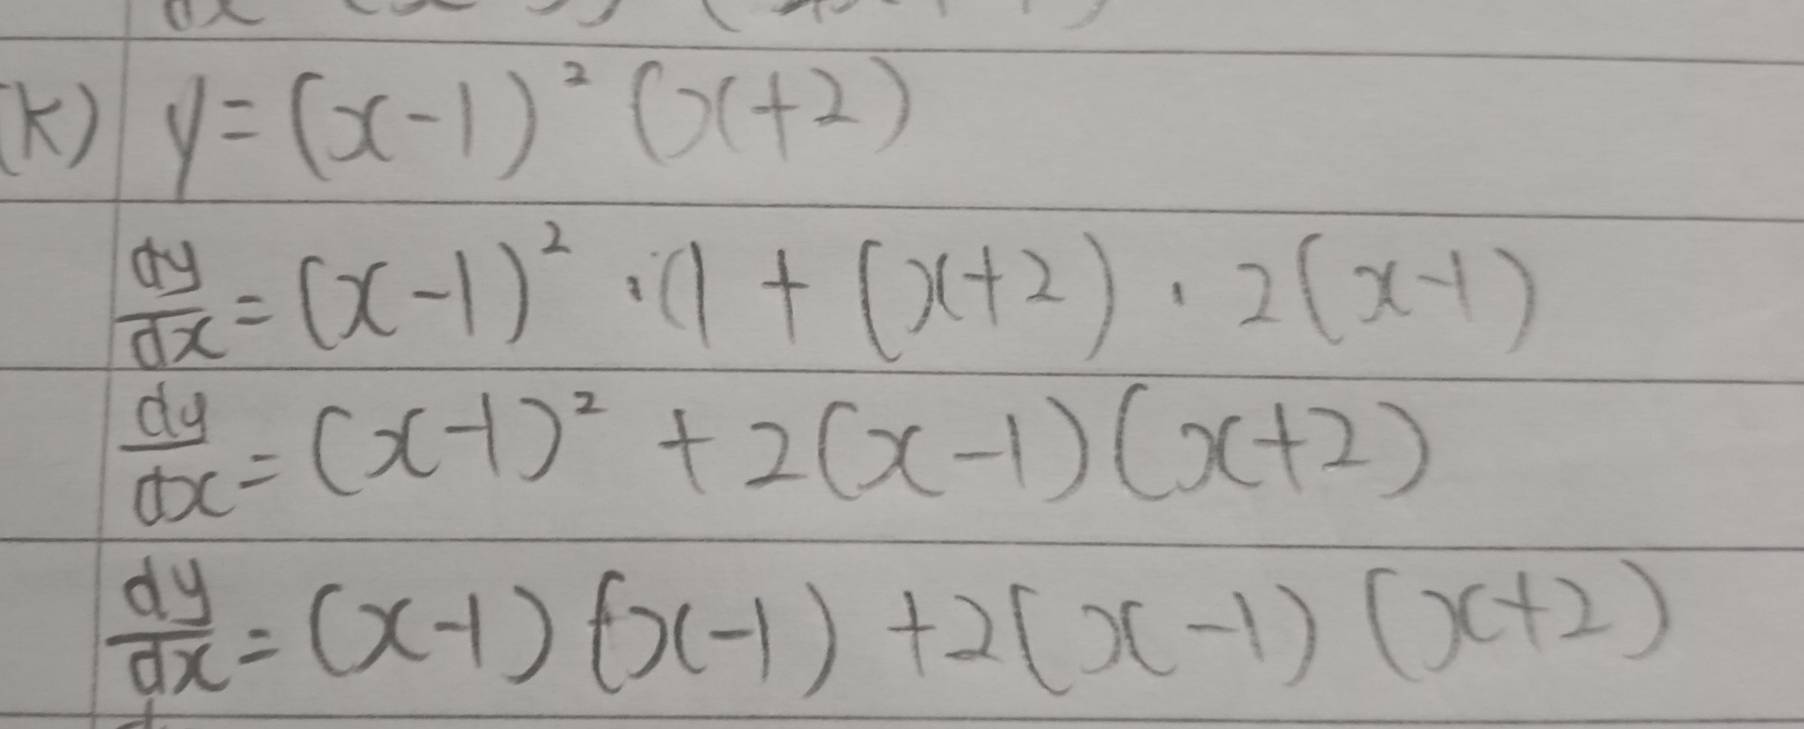 (k) y = (x-1)² (x+2)
dy/dx = (x-1)² · (1 + (x+2) · 2(x-1)
dy/dx = (x-1)² + 2(x-1)(x+2)
dy/dx = (x-1)(x-1) + 2(x-1)(x+2)